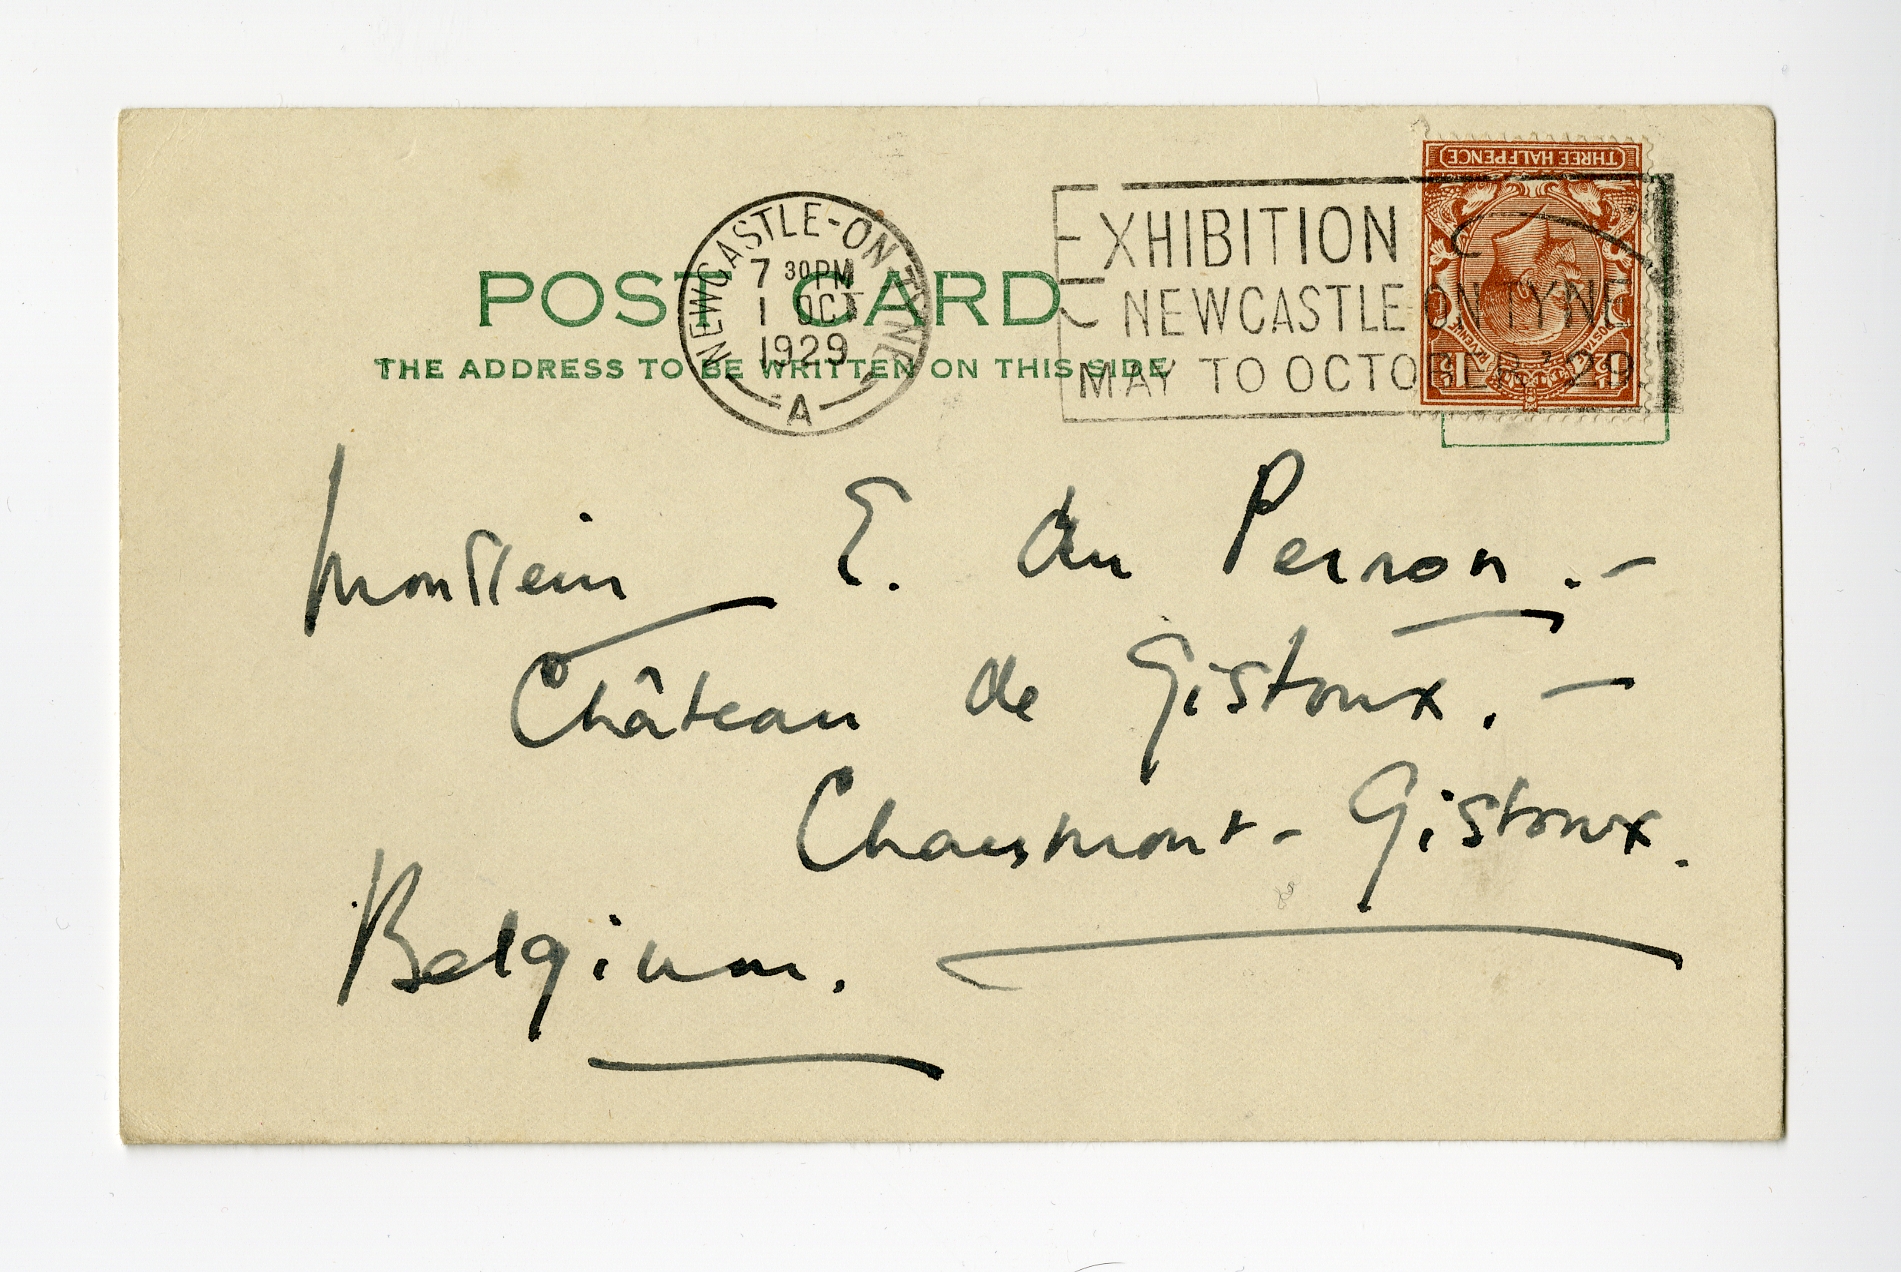 POST CARD
THE ADDRESS TO BE WRITTEN ON THIS SIDE
NEWCASTLE-ON-TYNE
7 30PM
1 OCT
1929
A
EXHIBITION
NEWCASTLE ON TYNE
MAY TO OCTOBER '29.
THREE HALFPENCE
POSTAGE
REVENUE
Monsieur E. du Perron.-
Château de Gistoux.-
Chaumont-Gistoux.
Belgium.